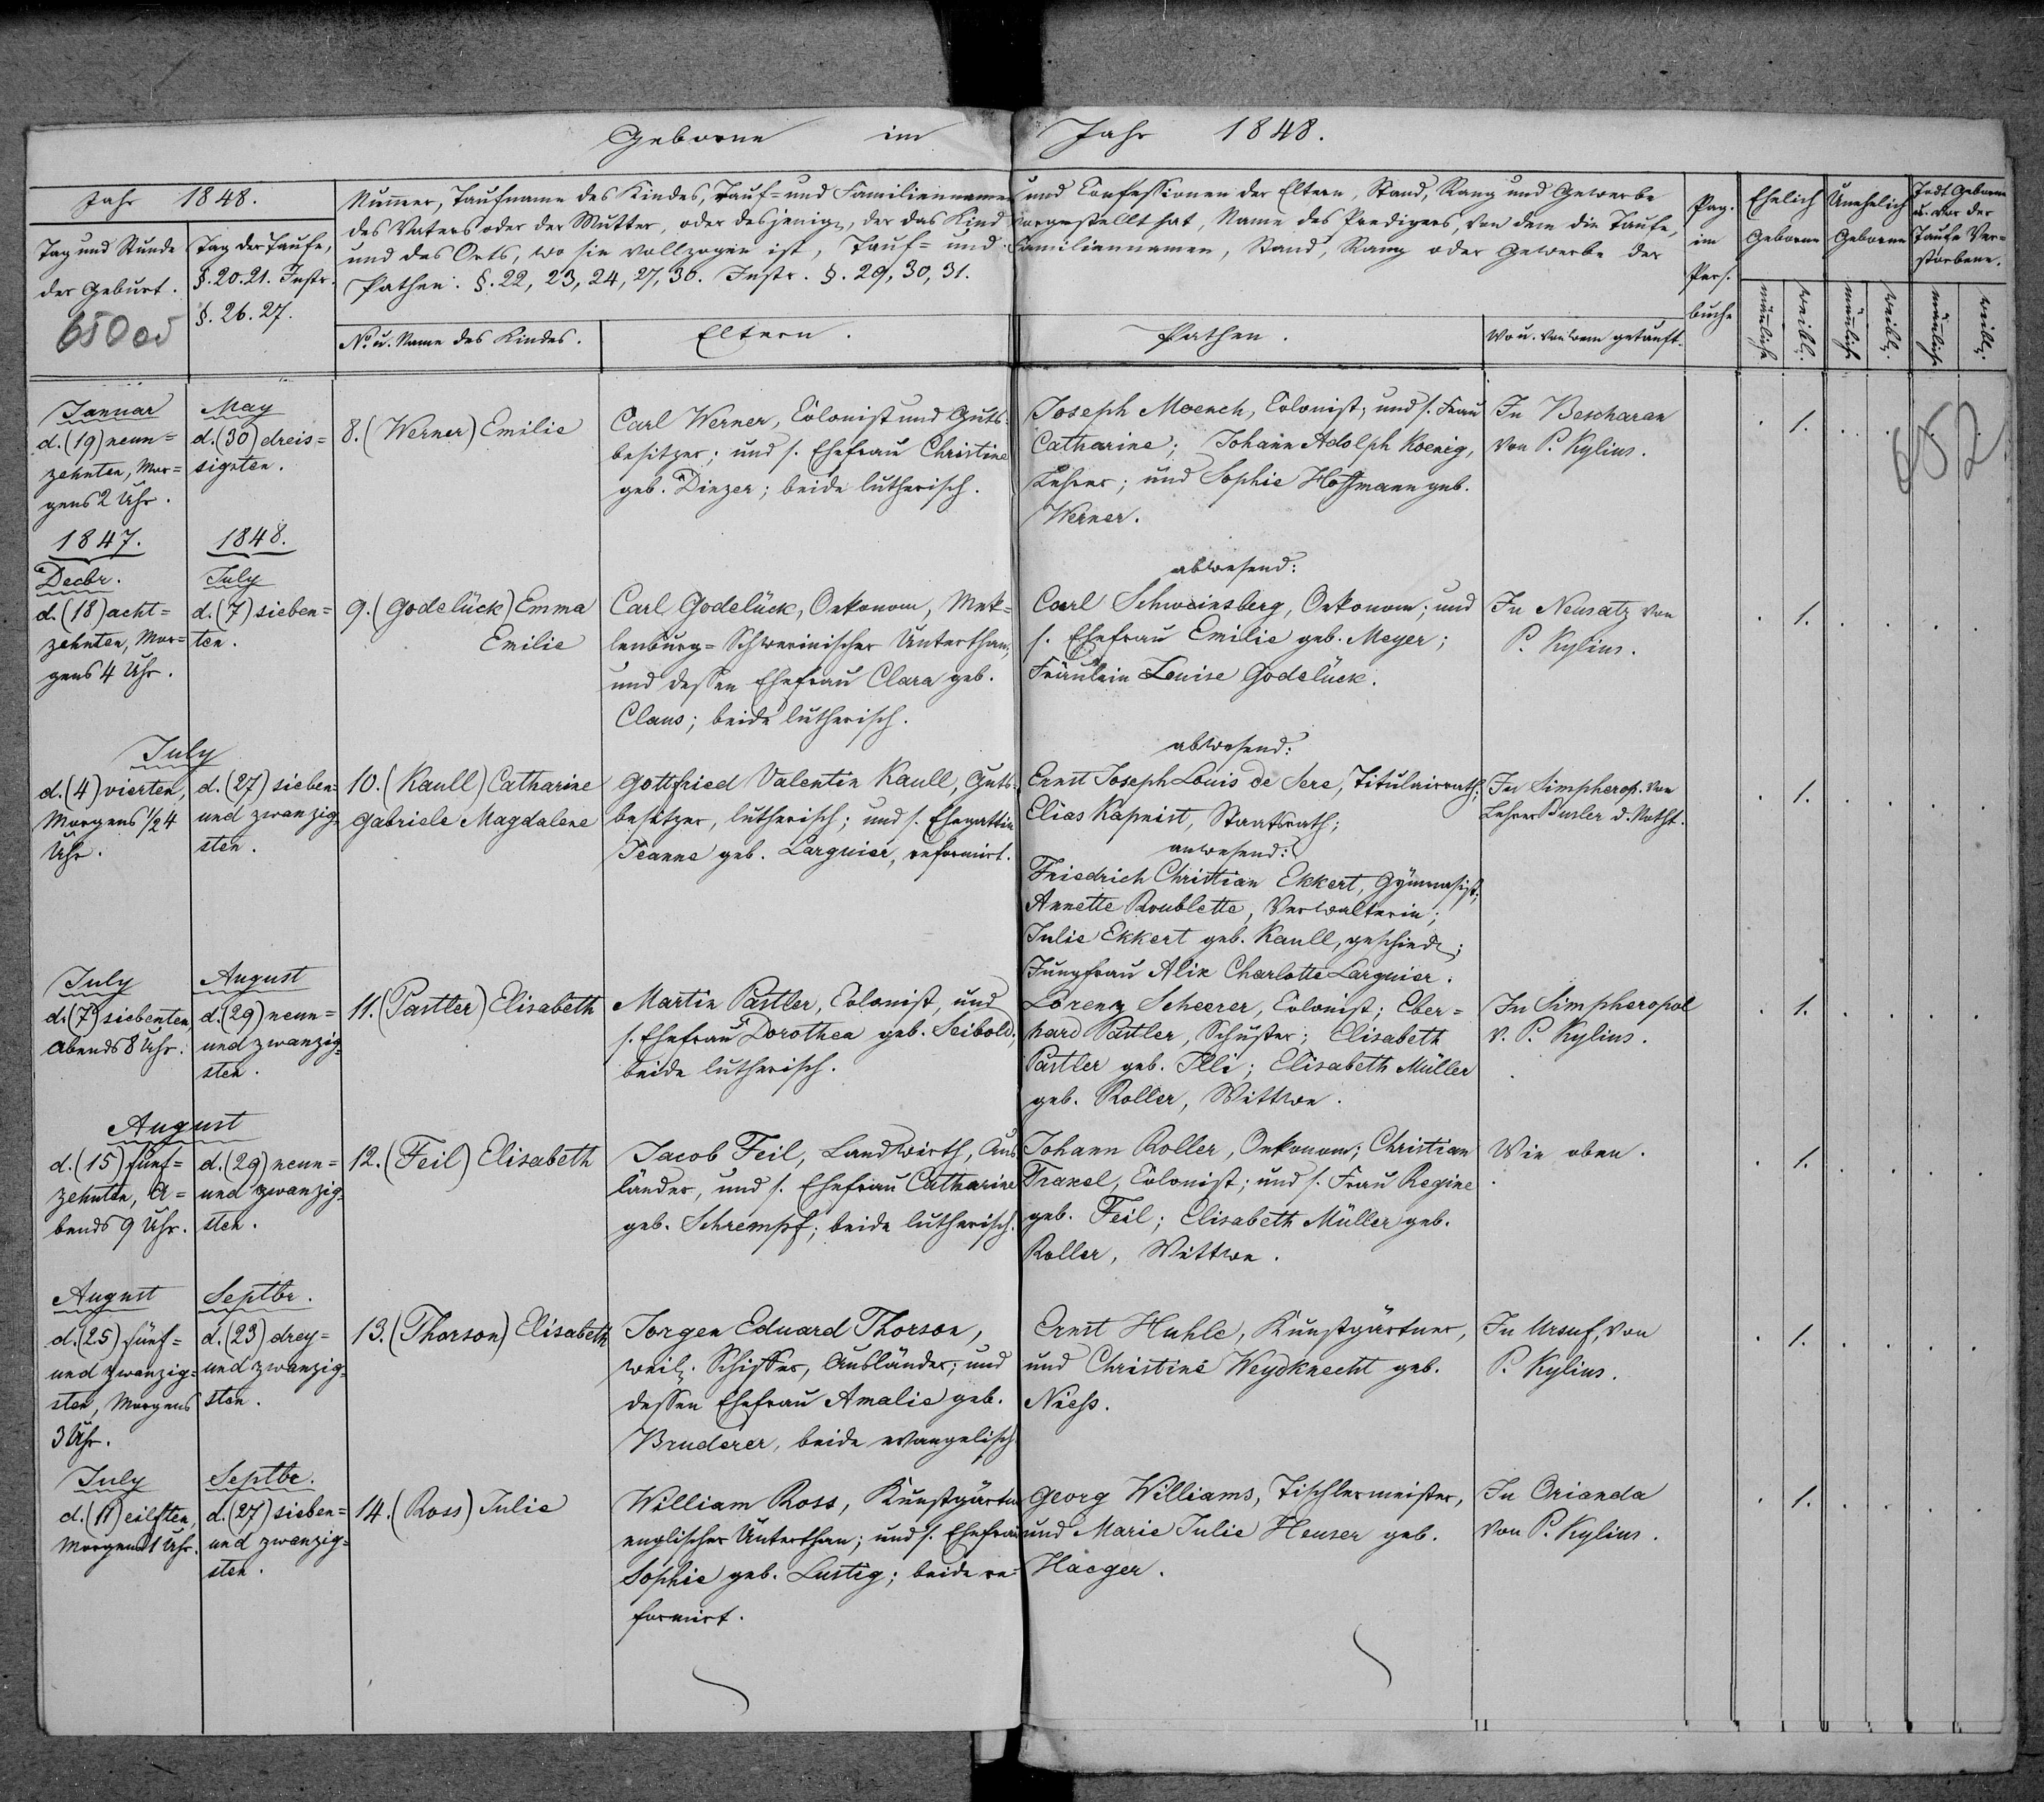 Geborne im Jahr 1848.
Jahr 1848.
Tag und Stunde
der Geburt.
650 os
Tag der Taufe,
§. 20. 21. Instr.
§. 26. 27.
Numer, Taufname des Kindes, Tauf= und Familiennamen und Confessionen der Eltern, Stand, Rang und Gewerbe
des Vaters oder der Mutter, oder desjenigen, der das Kind vorgestellt hat, Name des Predigers, von dem die Taufe,
und des Orts, wo sie vollzogen ist, Tauf= und Familiennamen, Stand, Rang oder Gewerbe der
Pathen: §. 22, 23, 24, 27, 30. Instr. §. 29, 30, 31.
No. u. Name des Kindes.
Eltern.
Pathen.
Wo u. von wem getauft.
Pag.
im
Pers.
buche
Ehelich
Geborne
Unehelich
Geborne
Todt Geborne
u. vor der
Taufe Ver=
storbene.
männlich
weibl.
männlich
weibl.
männlich
weibl.
652
Januar
d. (19) neun=
zehnten, Mor=
gens 2 Uhr.
May
d. (30) dreis=
sigsten.
8. (Werner) Emilie
Carl Werner, Colonist und Guts=
besitzer; und s. Ehefrau Christine
geb. Dinzer; beide lutherisch.
Joseph Moench, Colonist; und s. Frau
Catharine; Johann Adolph Koenig,
Lehrer; und Sophie Hoffmann geb.
Werner.
In Bescharan
von P. Kylius.
1.
1847.
Decbr.
d. (18) acht=
zehnten, Mor=
gens 4 Uhr.
1848.
July
d. (7) sieben=
ten.
9. (Godelück) Emma
Emilie
Carl Godelück, Oekonom, Mek=
lenburg=Schwerinischer Unterthan,
und dessen Ehefrau Clara geb.
Claus; beide lutherisch.
abwesend:
Carl Schweinsberg, Oekonom; und
s. Ehefrau Emilie geb. Meyer;
Fräulein Louise Godelück.
In Neusatz von
P. Kylius.
1.
July
d. (4) vierten,
Morgens 1/2 4
Uhr.
d. (27) sieben=
und zwanzig=
sten.
10. (Kaull) Catharine
Gabriele Magdalene
Gottfried Valentin Kaull, Guts=
besitzer, lutherisch; und s. Ehegattin
Jeanne geb. Larguier, reformirt.
abwesend:
Ernst Joseph Louis de Sere, Titulairrath;
Elias Kapnist, Staatsrath;
anwesend:
Friedrich Christian Ekkert, Gymnasist;
Annette Roublette, Verwalterin;
Julie Ekkert geb. Kaull, geschied.;
Jungfrau Alix Charlotte Larguier.
In Simpherop. von
Lehrer Busler d. Notht.
1.
July
d. (7) siebenten,
Abends 8 Uhr.
August
d. (29) neun=
und zwanzig=
sten.
11. (Pastler) Elisabeth
Martin Pastler, Colonist, und
s. Ehefrau Dorothea geb. Seibold;
beide lutherisch.
Lorenz Scheerer, Colonist; Eber=
hard Pastler, Schuster; Elisabeth
Pastler geb. Illi; Elisabeth Müller
geb. Roller, Wittwe.
In Simpheropol
v. P. Kylius.
1.
August
d. (15) fünf=
zehnten, A=
bends 9 Uhr.
d. (29) neun=
und zwanzig=
sten.
12. (Feil) Elisabeth
Jacob Feil, Landwirth, Aus
länder, und s. Ehefrau Catharine
geb. Schrempf; beide lutherisch.
Johann Roller, Oekonom; Christian
Traxel, Colonist; und s. Frau Regine
geb. Feil; Elisabeth Müller geb.
Roller, Wittwe.
Wie oben.
1.
August
d. (25) fünf=
und zwanzig=
sten, Morgens
3 Uhr.
Septbr.
d. (23) drey=
und zwanzig=
sten.
13. (Thorson) Elisabeth
Jorgen Eduard Thorson,
weil. Schiffer, Ausländer; und
dessen Ehefrau Amalie geb.
Bruderer, beide evangelisch.
Ernst Huhle, Kunstgärtner,
und Christine Weydknecht geb.
Niess.
In Ursuf, von
P. Kylius.
1.
July
d. (11) eilften,
Morgens 1 Uhr.
Septbr.
d. (27) sieben=
und zwanzig=
sten.
14. (Ross) Julie
William Ross, Kunstgärtn
englischer Unterthan; und s. Ehefrau
Sophie geb. Lustig; beide re=
formirt.
Georg Williams, Tischlermeister,
und Marie Julie Heuser geb.
Haeger.
In Orianda
von P. Kylius.
1.